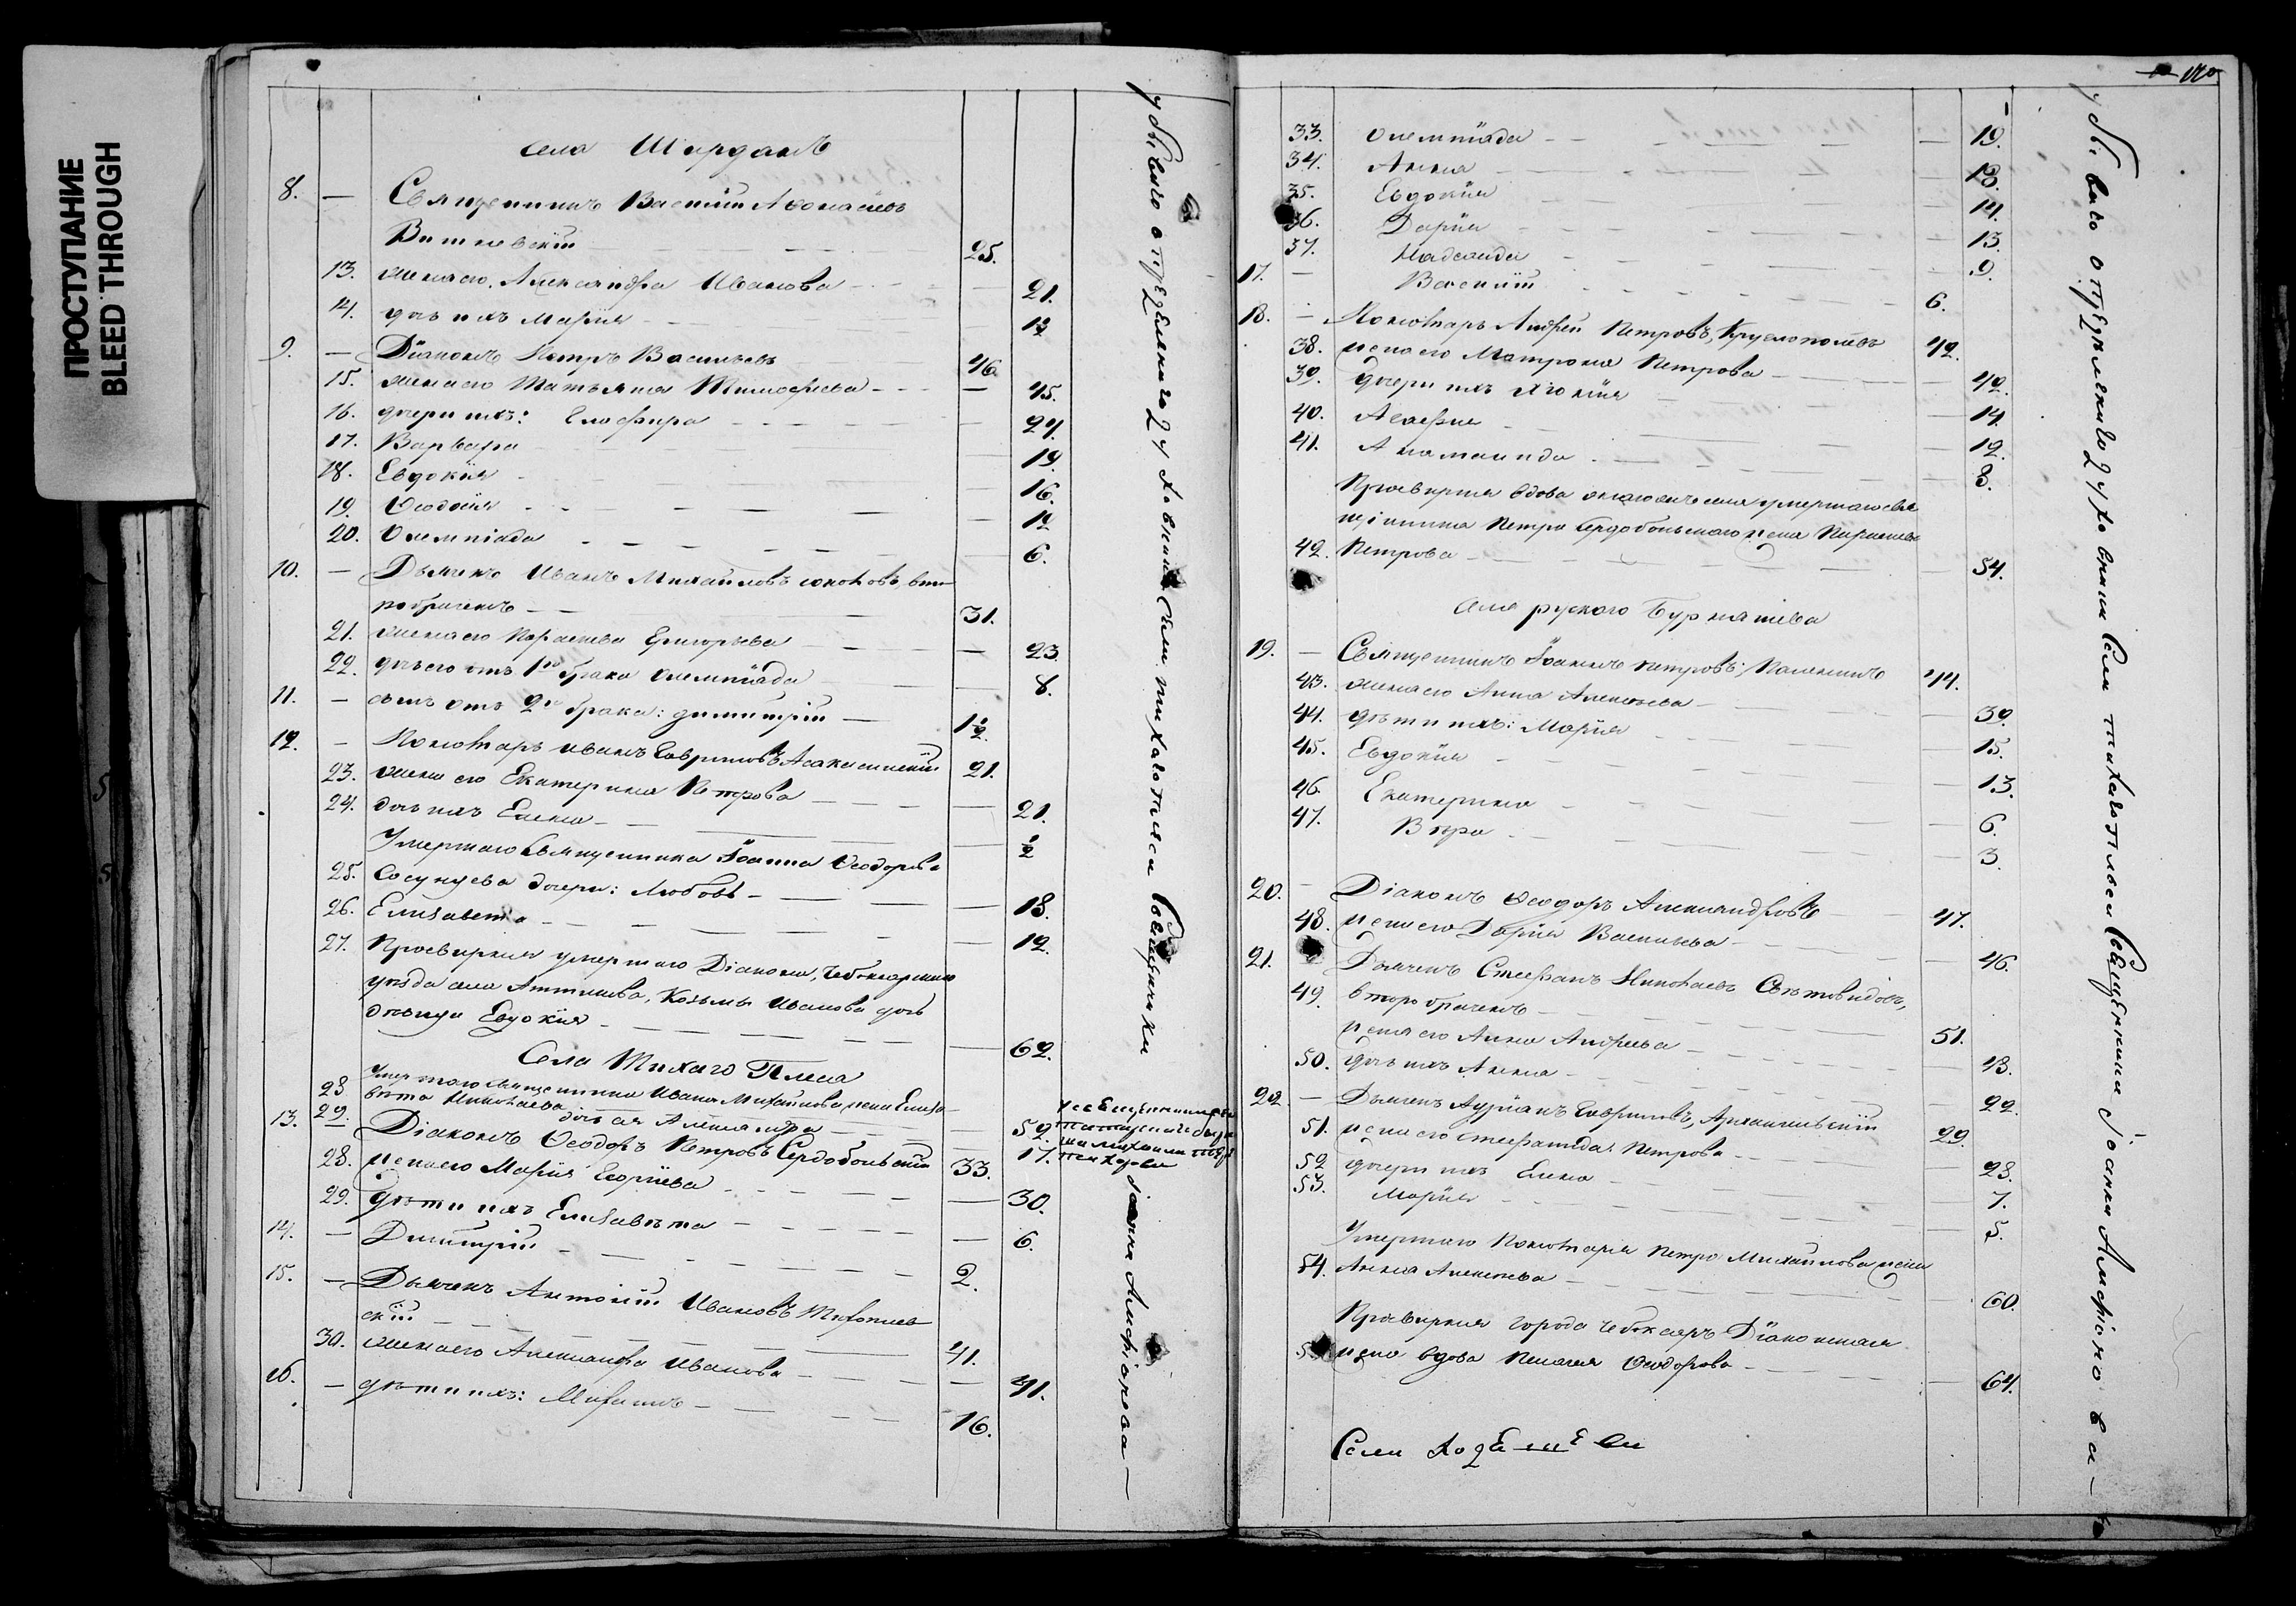 ПРОСТУПАНИЕ
BLEED THROUGH
села Шордамъ
8. — Священникъ Василій Афонасіевъ
Витневскій — 25.
13. жена его Александра Иванова — 21.
14. дочь ихъ Марія — 1½
9. — Діаконъ Петръ Васильевъ 46
15. жена его Татьяна Тимофѣева — 45.
16. дочери ихъ: Глафира — 24.
17. Варвара — 19.
18. Евдокія — 16.
19. Ѳеодосія — 12
20. Олемпіада — 6.
10. — Дьячекъ Иванъ Михайловъ второбраченъ — 31.
21. жена его Парасковья Григорьева — 23
22. дочь его отъ 1го брака Олемпіада — 8.
11. — сынъ отъ 2го брака: Димитрій — 1½.
12. — Пономарь Иванъ Гавриловъ 21.
23. жена его Екатерина Петрова — 21.
24. дочь ихъ Елена — ½
Умершаго Священника Іоанна Ѳеодорова
25. Сосунцова дочери: Любовь — 18.
26. Елизавета — 12.
27. Просвирня умершаго Діакона, Чебоксарскаго
уѣзда села Аттикова, Козьмы Иванова дочь
дѣвица Евдокія — 62.
Села Тихаго Плеса
28 Умершаго священника Ивана Михайлова жена Елиза-
вета Николаева — 52.
29. дочь ея Александра — 17.
13. Діаконъ Ѳеодоръ Петровъ Сердобольскій 33.
28. жена его Марія Георгіева — 30.
29. дѣти ихъ Елизавѣта — 6.
14. — Димитрій — 2.
15. — Дьячекъ Антоній Ивановъ Тихоплес-
скій — 41.
30. жена его Александра Иванова — 41.
16. — дѣти ихъ: Михаилъ — 16.
у сего опредѣленаго духовника села тихаго плеса Священника Іоанна Алфіонова —
33. Олемпіада — 19.
34. Анна — 18.
35. Евдокія — 14.
36. Дарія — 13.
37. Надежда — 9.
17. — Василій — 6.
18. — Пономарь Андрей Петровъ, Круглополевъ 42.
38. жена его Матрона Петрова — 42.
39. дочери ихъ — 14.
40. — 12.
41. — 8.
Просвирня вдова онаго же села умершаго свя-
щенника Петра Сердобольскаго жена Парасковья
42. Петрова — 54.
села рускаго Бурнашева
19. — Священникъ Іоаннъ Петровъ, 44.
43. жена его Анна Алексѣева — 39.
44. дѣти ихъ: Марія — 15.
45. Евдокія — 13.
46. Екатерина — 6.
47. Вѣра — 3.
20. — Діаконъ Ѳеодоръ Александровъ — 47.
48. жена его Дарія Васильева — 46.
21. Дьячекъ Стефанъ Николаевъ Свѣтовидовъ,
второбраченъ — 51.
49. жена его Анна Андреева — 43.
50. дочь ихъ Анна — 22.
22. — Дьячекъ Адріанъ Гавриловъ, Архангельскій 29.
51. жена его Стефанида Петрова — 28.
52 дочери ихъ Елена — 7.
53. Марія — 5.
Умершаго Пономаря Петра Михайлова жена
54. Анна Алексѣева — 60.
Просвирня города Чебоксаръ Діаконская
жена вдова Пелагея Ѳеодорова — 64.
Села
у сего опредѣленаго духовника села тихаго плеса Священника Іоанна Алфіонова —